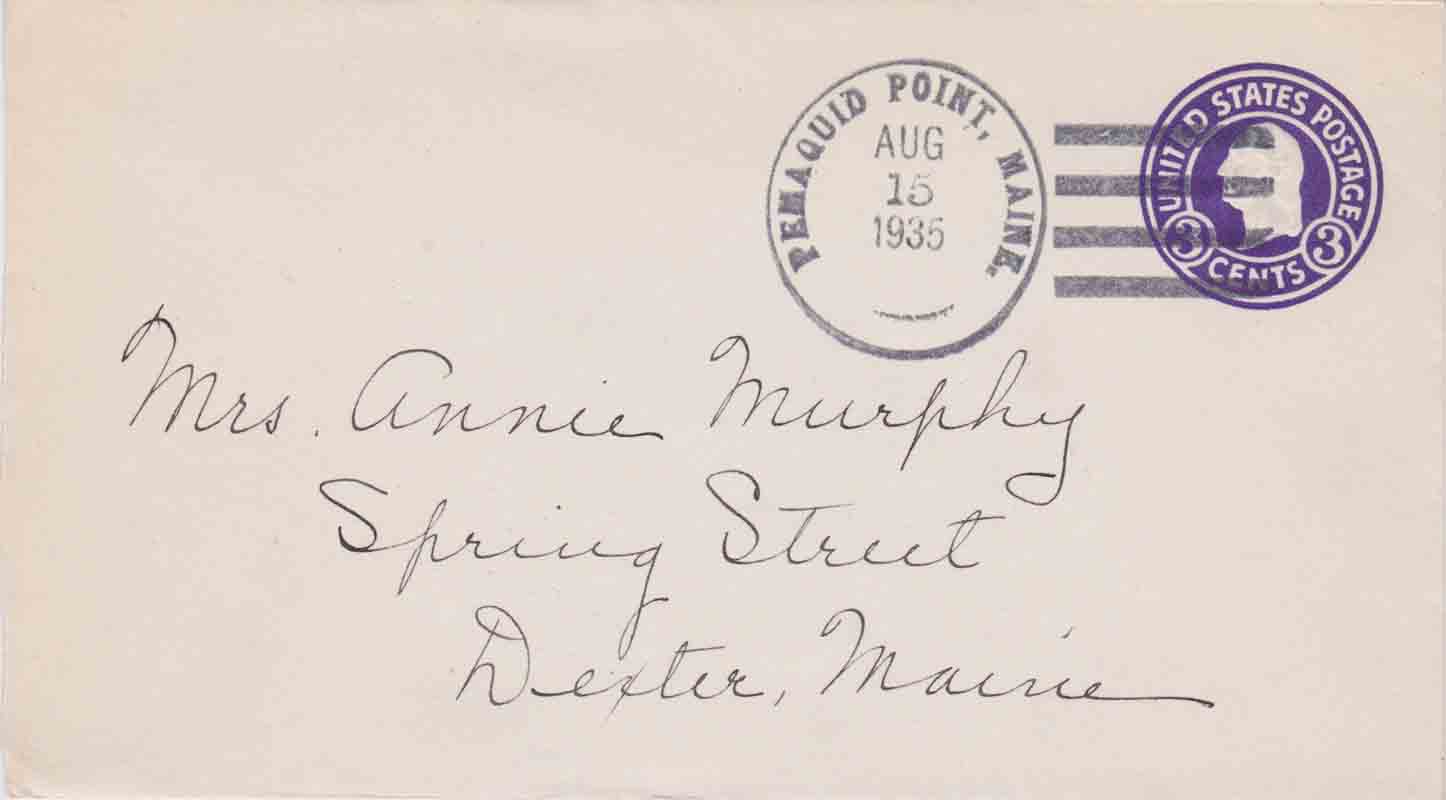 PEMAQUID POINT, MAINE.
AUG
15
1935
UNITED STATES POSTAGE
3 CENTS 3
Mrs. Annie Murphy
Spring Street
Dexter, Maine